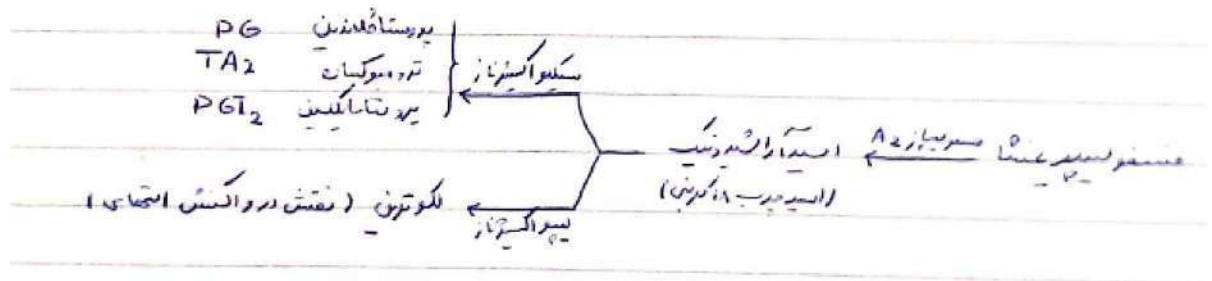 پروستاگلاندین PG
ترومبوکسان TA2
پروستاسایکلین PGI2
سیکلواکسیژناز
فسفولیپید غشا
فسفولیپاز A2
اسید آراشیدونیک
(اسید چرب ۱۸ کربنی)
لیپواکسیژناز
لکوترین (نقش در واکنش التهابی)